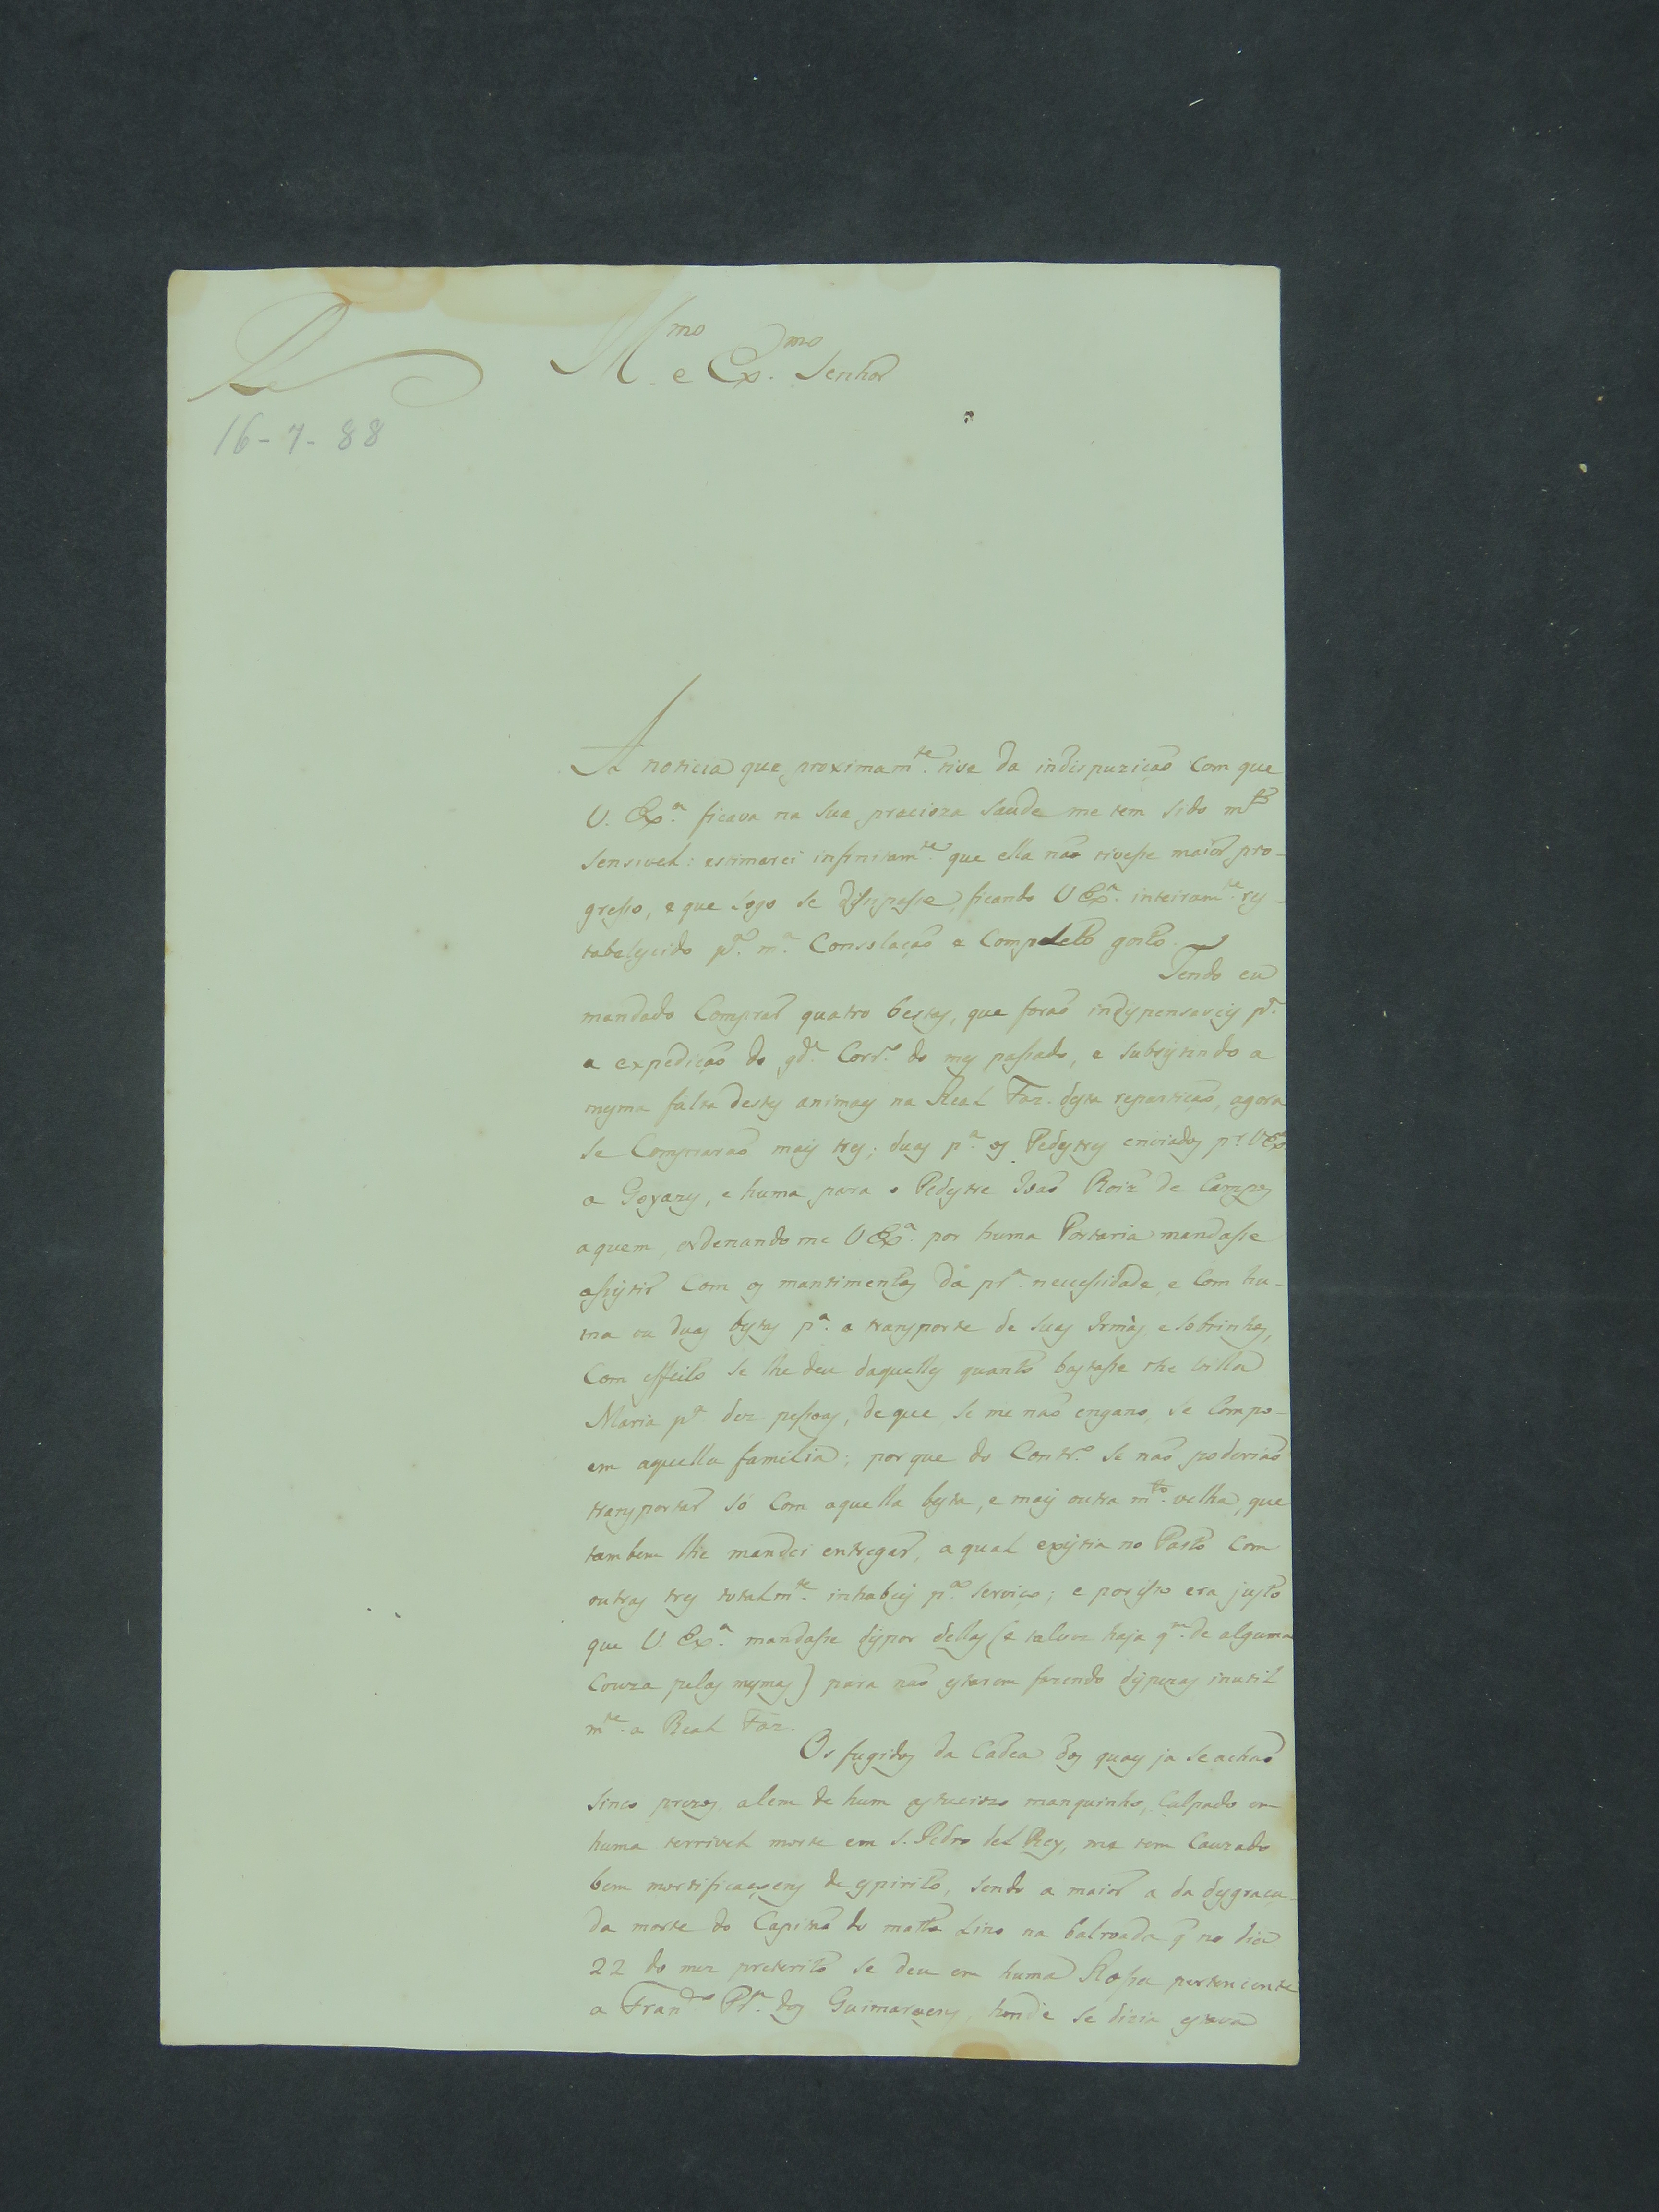 Ill.mo e Ex.mo Senhor
16-7-88
A noticia que proximam.te tive da indispuziçaõ Com que
V. Ex.a ficava na sua precioza saude me tem sido m.to
sensivel: estimarei infinitam.te que ella naõ tivesse maior pro-
gresso, e que logo se dissipasse, ficando V Ex.a inteiram.te res-
tabelycido p.a m.a Consolaçaõ e Completo gosto.
Tendo eu
mandado Comprar quatro bestas, que foraõ indyspensaveis p.a
a expediçaõ do Corr.o do mes passado, e subsistindo a
mesma falta destes animaes na Real Faz. desta repartiçaõ, agora
se Compraraõ mais tres; duas p.a os Pedestres enviados p.r V Ex.a
a Goyazes, e huma para o Pedestre Joaõ Roiz de Campos
aquem, ordenandome V Ex.a por huma Portaria mandasse
assistir Com os mantimentos da pr.a necessidade, e Com hu-
ma ou duas bestas p.a o transporte de suas Irmãs e sobrinhos,
Com effeito se lhe deu daquelles quanto bastasse the Villa
Maria p.a dez pessoas, de que se me naõ engano, se Compo-
em aquella familia; por que do Contr.o se naõ poderiaõ
transportar só Com aquella besta, e mais outra m.to velha, que
tambem lhe mandei entregar, a qual existia no Pasto Com
outras tres totalm.te inhabeis p.a o serviço; e porisso era justo
que V. Ex.a mandasse dispor dellas (e talvez haja q.m de alguma
Couza pelas mesmas) para naõ estarem fazendo dispezas inutil
m.te a Real Faz.
Os fugidos da Cadea dos quaes ja se achaõ
sinco prezos, alem de hum astuciozo manquinho, Culpado em
huma terrivel morte em S. Pedro del Rey, me tem Cauzado
bem mortificaçoens de espirito, sendo a maior a da desgraça-
da morte do Capitaõ do matto Lino na balroada q no dia
22 do mez preterito se deu em huma Rossa pertencente
a Fran.co Pr.a dos Guimaraens, honde se dizia estava